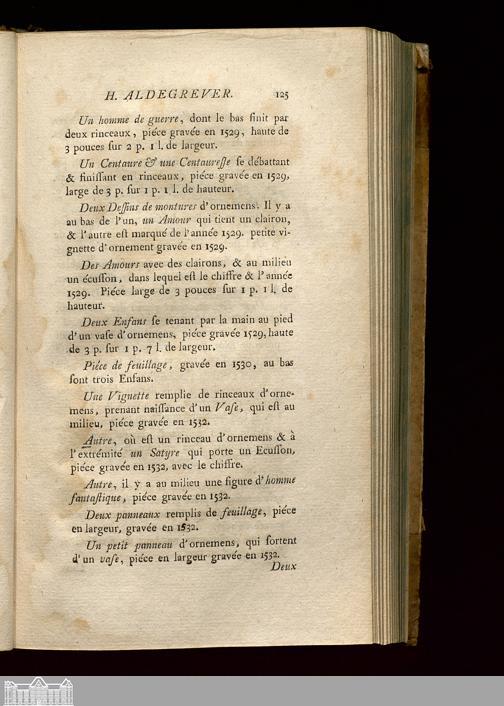 H. ALDEGREVER. 125
Un homme de guerre, dont le bas finit par
deux rinceaux, piéce gravée en 1529, haute de
3 pouces ſur 2 p. 1 l. de largeur.
Un Centaure & une Centaureſſe ſe débattant
& finiſſant en rinceaux, piéce gravée en 1529,
large de 3 p. ſur 1 p. 1 l. de hauteur.
Deux Deſſins de montures d'ornemens. Il y a
au bas de l'un, un Amour qui tient un clairon,
& l'autre eſt marqué de l'année 1529. petite vi-
gnette d'ornement gravée en 1529.
Des Amours avec des clairons, & au milieu
un écuſſon, dans lequel eſt le chiffre & l'année
1529. Piéce large de 3 pouces ſur 1 p. 1 l. de
hauteur.
Deux Enfans ſe tenant par la main au pied
d'un vaſe d'ornemens, piéce gravée 1529, haute
de 3 p. ſur 1 p. 7 l. de largeur.
Piéce de feuillage, gravée en 1530, au bas
ſont trois Enfans.
Une Vignette remplie de rinceaux d'orne-
mens, prenant naiſſance d'un Vaſe, qui eſt au
milieu, piéce gravée en 1532.
Autre, où eſt un rinceau d'ornemens & à
l'extrémité un Satyre qui porte un Ecuſſon,
piéce gravée en 1532, avec le chiffre.
Autre, il y a au milieu une figure d'homme
fantaſtique, piéce gravée en 1532.
Deux panneaux remplis de feuillage, piéce
en largeur, gravée en 1532.
Un petit panneau d'ornemens, qui ſortent
d'un vaſe, piéce en largeur gravée en 1532.
Deux